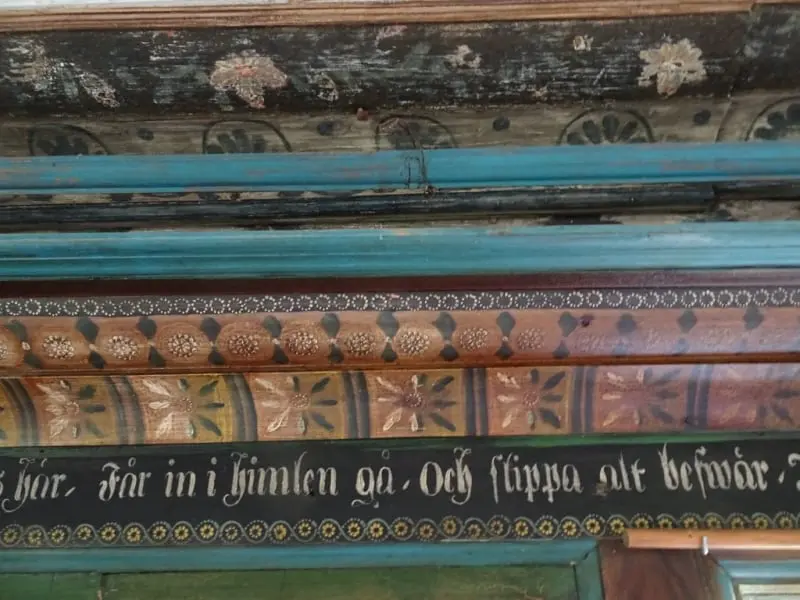 här. Får in i himlen gå. Och slippa alt beswär.